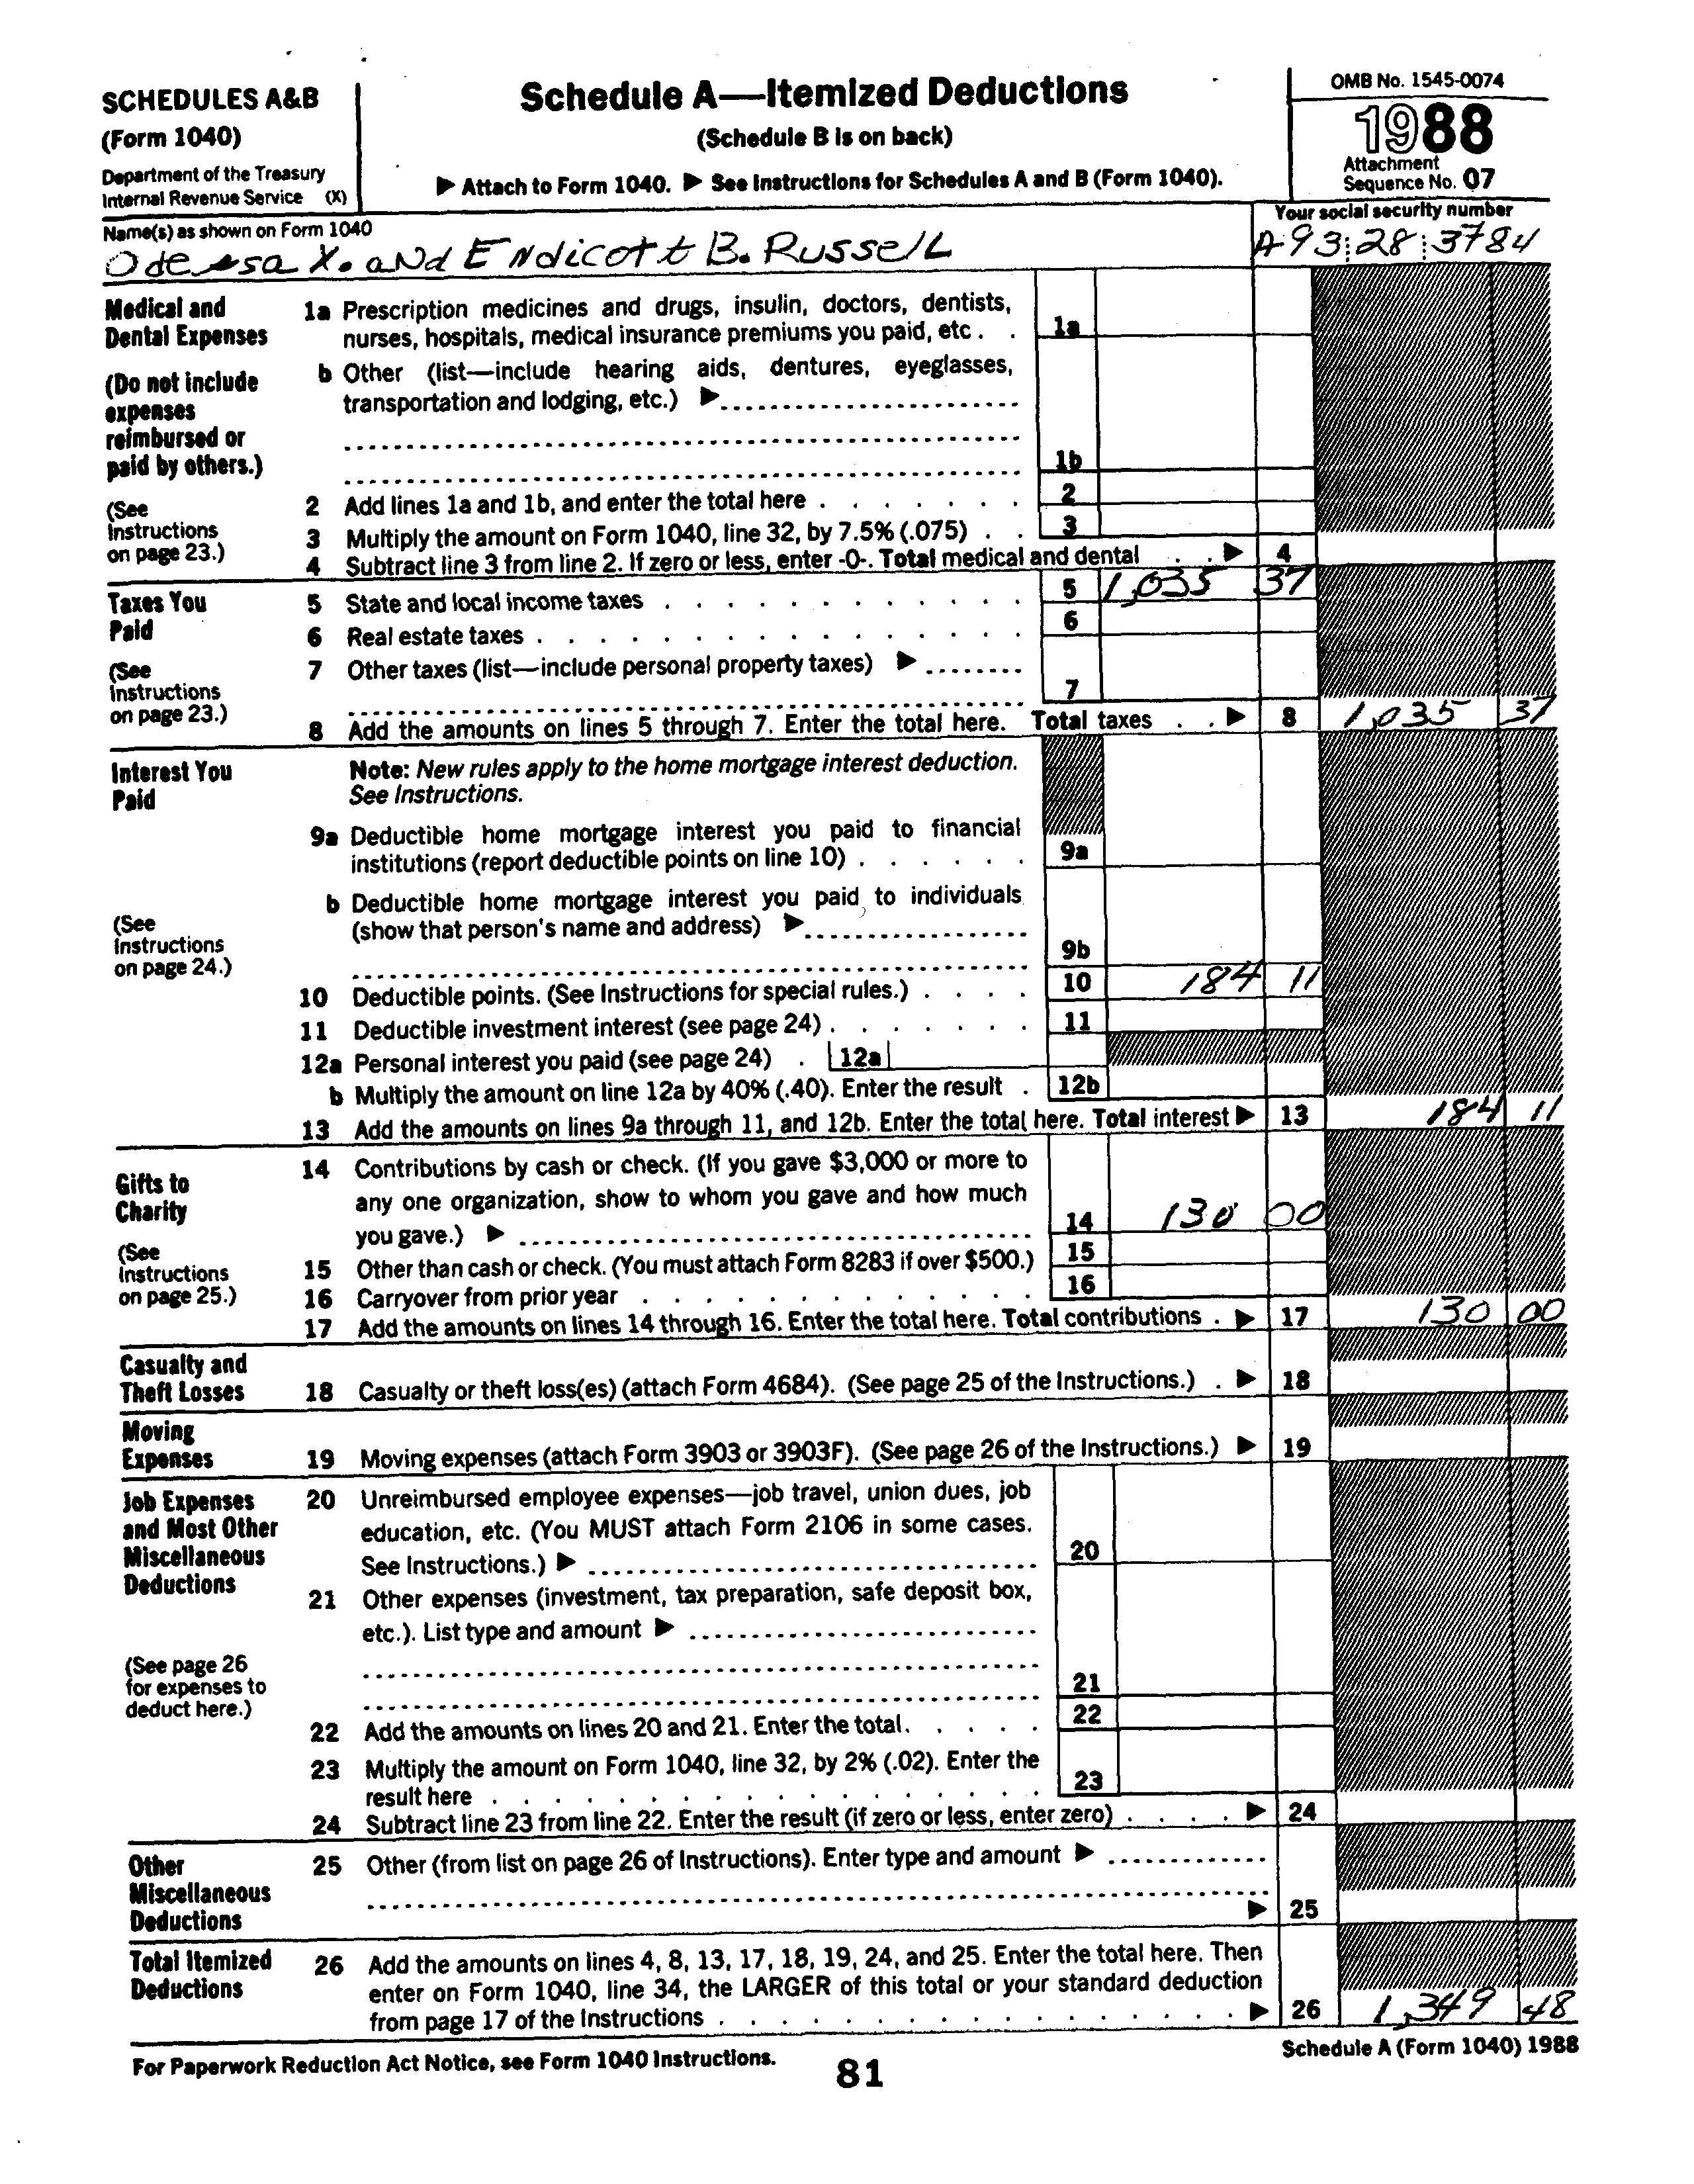 SCHEDULES A&B
(Form 1040)
Department of the Treasury
Internal Revenue Service (X)
Schedule A—Itemized Deductions
(Schedule B is on back)
▶ Attach to Form 1040. ▶ See Instructions for Schedules A and B (Form 1040).
OMB No. 1545-0074
1988
Attachment
Sequence No. 07
Name(s) as shown on Form 1040
Odessa X. and Endicott B. Russell
Your social security number
A93:28:3784
Medical and
Dental Expenses
(Do not include
expenses
reimbursed or
paid by others.)
(See
Instructions
on page 23.)
1a Prescription medicines and drugs, insulin, doctors, dentists,
nurses, hospitals, medical insurance premiums you paid, etc . . 1a
b Other (list—include hearing aids, dentures, eyeglasses,
transportation and lodging, etc.) ▶
1b
2 Add lines 1a and 1b, and enter the total here . . . . . . . 2
3 Multiply the amount on Form 1040, line 32, by 7.5% (.075) . . 3
4 Subtract line 3 from line 2. If zero or less, enter -0-. Total medical and dental . . ▶ 4
Taxes You
Paid
(See
Instructions
on page 23.)
5 State and local income taxes . . . . . . . . . . . 5 1,035 37
6 Real estate taxes . . . . . . . . . . . . . . . 6
7 Other taxes (list—include personal property taxes) ▶
7
8 Add the amounts on lines 5 through 7. Enter the total here. Total taxes . . ▶ 8 1,035 37
Interest You
Paid
(See
Instructions
on page 24.)
Note: New rules apply to the home mortgage interest deduction.
See Instructions.
9a Deductible home mortgage interest you paid to financial
institutions (report deductible points on line 10) . . . . . . 9a
b Deductible home mortgage interest you paid to individuals
(show that person's name and address) ▶
9b
10 Deductible points. (See Instructions for special rules.) . . . . 10 184 11
11 Deductible investment interest (see page 24) . . . . . . . 11
12a Personal interest you paid (see page 24) . 12a
b Multiply the amount on line 12a by 40% (.40). Enter the result . 12b
13 Add the amounts on lines 9a through 11, and 12b. Enter the total here. Total interest ▶ 13 184 11
Gifts to
Charity
(See
Instructions
on page 25.)
14 Contributions by cash or check. (If you gave $3,000 or more to
any one organization, show to whom you gave and how much
you gave.) ▶ 14 130 00
15 Other than cash or check. (You must attach Form 8283 if over $500.) 15
16 Carryover from prior year . . . . . . . . . . . . 16
17 Add the amounts on lines 14 through 16. Enter the total here. Total contributions . ▶ 17 130 00
Casualty and
Theft Losses
18 Casualty or theft loss(es) (attach Form 4684). (See page 25 of the Instructions.) . ▶ 18
Moving
Expenses
19 Moving expenses (attach Form 3903 or 3903F). (See page 26 of the Instructions.) ▶ 19
Job Expenses
and Most Other
Miscellaneous
Deductions
(See page 26
for expenses to
deduct here.)
20 Unreimbursed employee expenses—job travel, union dues, job
education, etc. (You MUST attach Form 2106 in some cases.
See Instructions.) ▶ 20
21 Other expenses (investment, tax preparation, safe deposit box,
etc.). List type and amount ▶
21
22 Add the amounts on lines 20 and 21. Enter the total. . . . . 22
23 Multiply the amount on Form 1040, line 32, by 2% (.02). Enter the
result here . . . . . . . . . . . . . . . . . 23
24 Subtract line 23 from line 22. Enter the result (if zero or less, enter zero) . . . . ▶ 24
Other
Miscellaneous
Deductions
25 Other (from list on page 26 of Instructions). Enter type and amount ▶
▶ 25
Total Itemized
Deductions
26 Add the amounts on lines 4, 8, 13, 17, 18, 19, 24, and 25. Enter the total here. Then
enter on Form 1040, line 34, the LARGER of this total or your standard deduction
from page 17 of the Instructions . . . . . . . . . . . . . . . . ▶ 26 1,349 48
For Paperwork Reduction Act Notice, see Form 1040 Instructions.
81
Schedule A (Form 1040) 1988